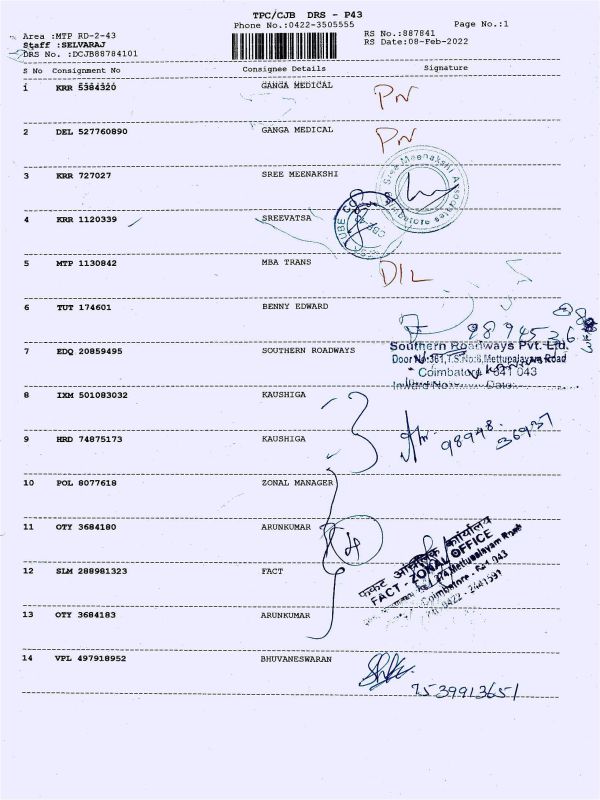 TPC/CJB DRS - P43
Phone No.:0422-3505555
Page No.:1
Area :MTP RD-2-43
RS No.:887841
Staff :SELVARAJ
RS Date:08-Feb-2022
DRS No. :DCJB88784101
S No Consignment No Consignee Details Signature
1 KRR 5384320 GANGA MEDICAL PN
2 DEL 527760890 GANGA MEDICAL PN
3 KRR 727027 SREE MEENAKSHI
Sree Meenakshi Associates
4 KRR 1120339 SREEVATSA
5 MTP 1130842 MBA TRANS D/L
6 TUT 174601 BENNY EDWARD
7 EDQ 20859495 SOUTHERN ROADWAYS
Southern Roadways Pvt. Ltd.
Door No:361,T.S.No:8,Mettupalayam Road
Coimbatore - 641 043
8 IXM 501083032 KAUSHIGA
9 HRD 74875173 KAUSHIGA
98948 - 36937
10 POL 8077618 ZONAL MANAGER
11 OTY 3684180 ARUNKUMAR
4
12 SLM 288981323 FACT
फैक्ट आंचलिक कार्यालय
FACT - ZONAL OFFICE
Mettupalayam Road
Coimbatore - 641 043
0422 - 2441591
13 OTY 3684183 ARUNKUMAR
14 VPL 497918952 BHUVANESWARAN
7539913651